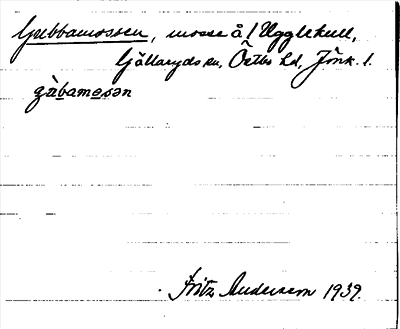 Gubbamossen, mosse å / Ugglekull,
Gällaryds sn, Östbo hd, Jönk. l.
gùbamosən
Fritz Andersson 1939.